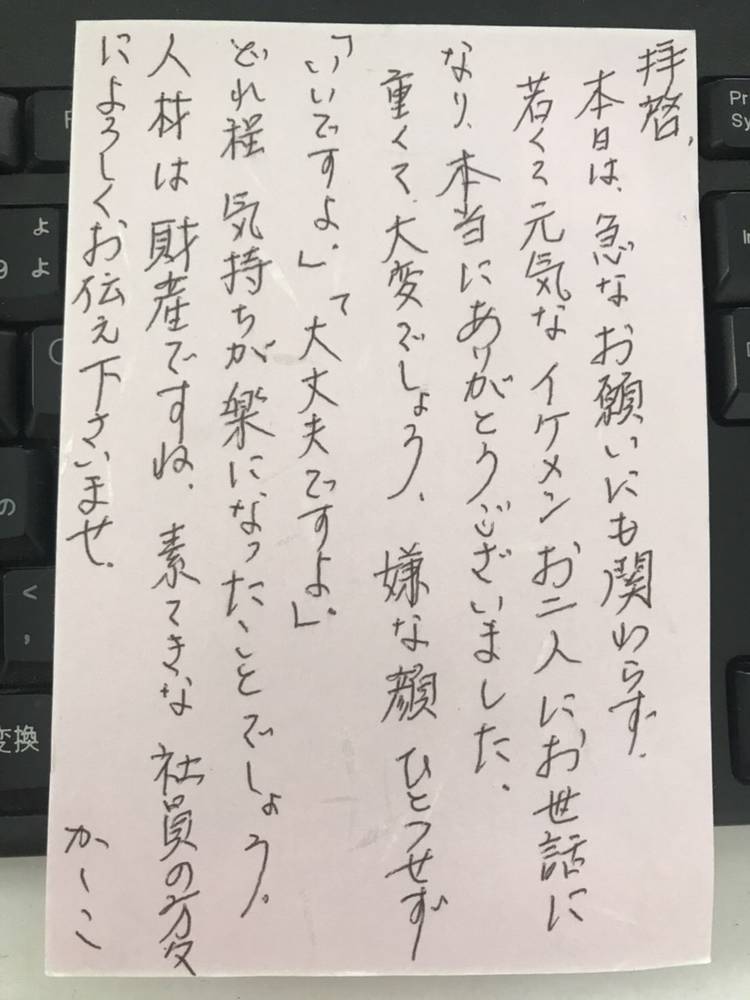 拝啓、
本日は、急なお願いにも関わらず、
若くて元気なイケメンお二人にお世話に
なり、本当にありがとうございました。
重くて大変でしょう、嫌な顔ひとつせず
「いいですよ。」「大丈夫ですよ。」
どれ程気持ちが楽になったことでしょう。
人材は財産ですね、素てきな社員の方々
によろしくお伝え下さいませ。
かーこ
Pr
Sy
In
よ
9 よ
の
<
,
変換